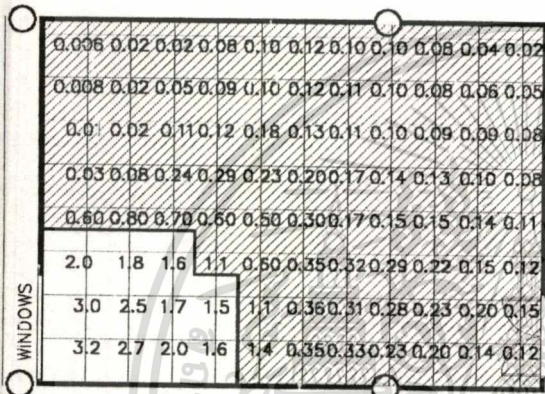 0.006 0.02 0.02 0.08 0.10 0.12 0.10 0.10 0.08 0.04 0.02
0.008 0.02 0.05 0.09 0.10 0.12 0.11 0.10 0.08 0.06 0.05
0.01 0.02 0.11 0.12 0.18 0.13 0.11 0.10 0.09 0.09 0.08
0.03 0.08 0.24 0.29 0.23 0.20 0.17 0.14 0.13 0.10 0.08
0.60 0.80 0.70 0.60 0.50 0.30 0.17 0.15 0.15 0.14 0.11
2.0 1.8 1.6 1.1 0.60 0.35 0.32 0.29 0.22 0.15 0.12
3.0 2.5 1.7 1.5 1.1 0.36 0.31 0.28 0.23 0.20 0.15
3.2 2.7 2.0 1.6 1.4 0.35 0.33 0.23 0.20 0.14 0.12
WINDOWS